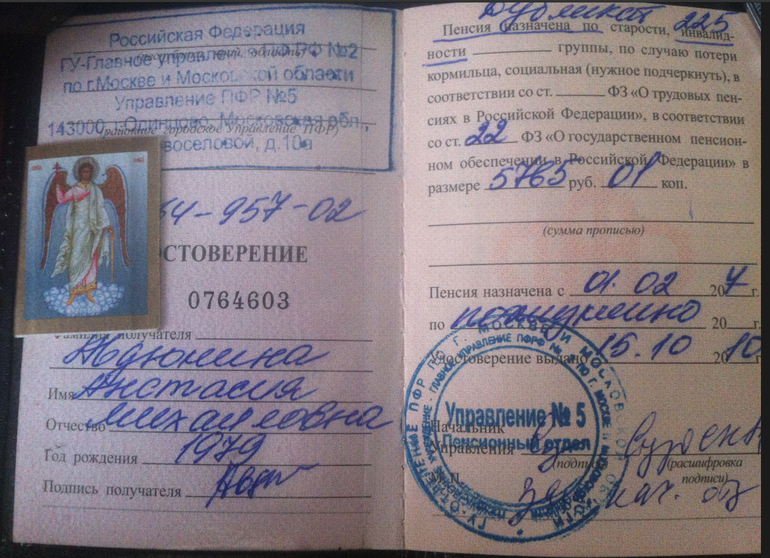 Российская Федерация
ГУ-Главное управление ПФ РФ №2
по г.Москве и Московской области
Управление ПФР №5
143000, г.Одинцово, Московская обл.,
(районное городское Управление ПФР)
д.10а
4-957-02
СТОВЕРЕНИЕ
0764603
Фамилия получателя
Имя Анастасия
Отчество Михайловна
Год рождения 1979
Подпись получателя
Дубликат 225
Пенсия назначена по старости, инвалид-
ности группы, по случаю потери
кормильца, социальная (нужное подчеркнуть), в
соответствии со ст. ФЗ «О трудовых пен-
сиях в Российской Федерации», в соответствии
со ст. 22 ФЗ «О государственном пенсион-
ном обеспечении в Российской Федерации» в
размере 5765 руб. 01 коп.
(сумма прописью)
Пенсия назначена с 01.02 20 7 г.
по 20 г.
Удостоверение выдано 15.10 20 10
Начальник
Управления
(подпись) (расшифровка
подписи)
М.П.
Зам. нач. отд
Управление № 5
Пенсионный отдел